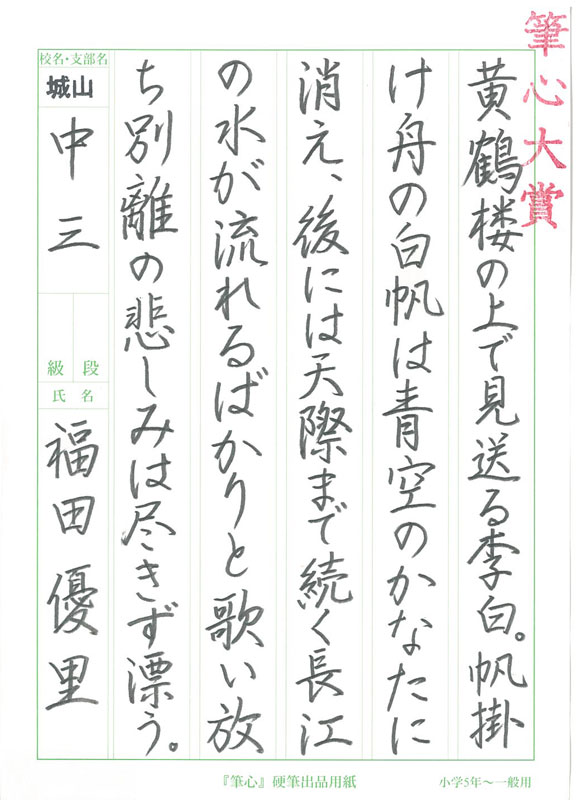 筆心大賞
黄鶴楼の上で見送る李白。帆掛
け舟の白帆は青空のかなたに
消え、後には天際まで続く長江
の水が流れるばかりと歌い放
ち別離の悲しみは尽きず漂う。
校名・支部名
城山
中三
級 段
氏 名
福田優里
『筆心』硬筆出品用紙
小学5年〜一般用